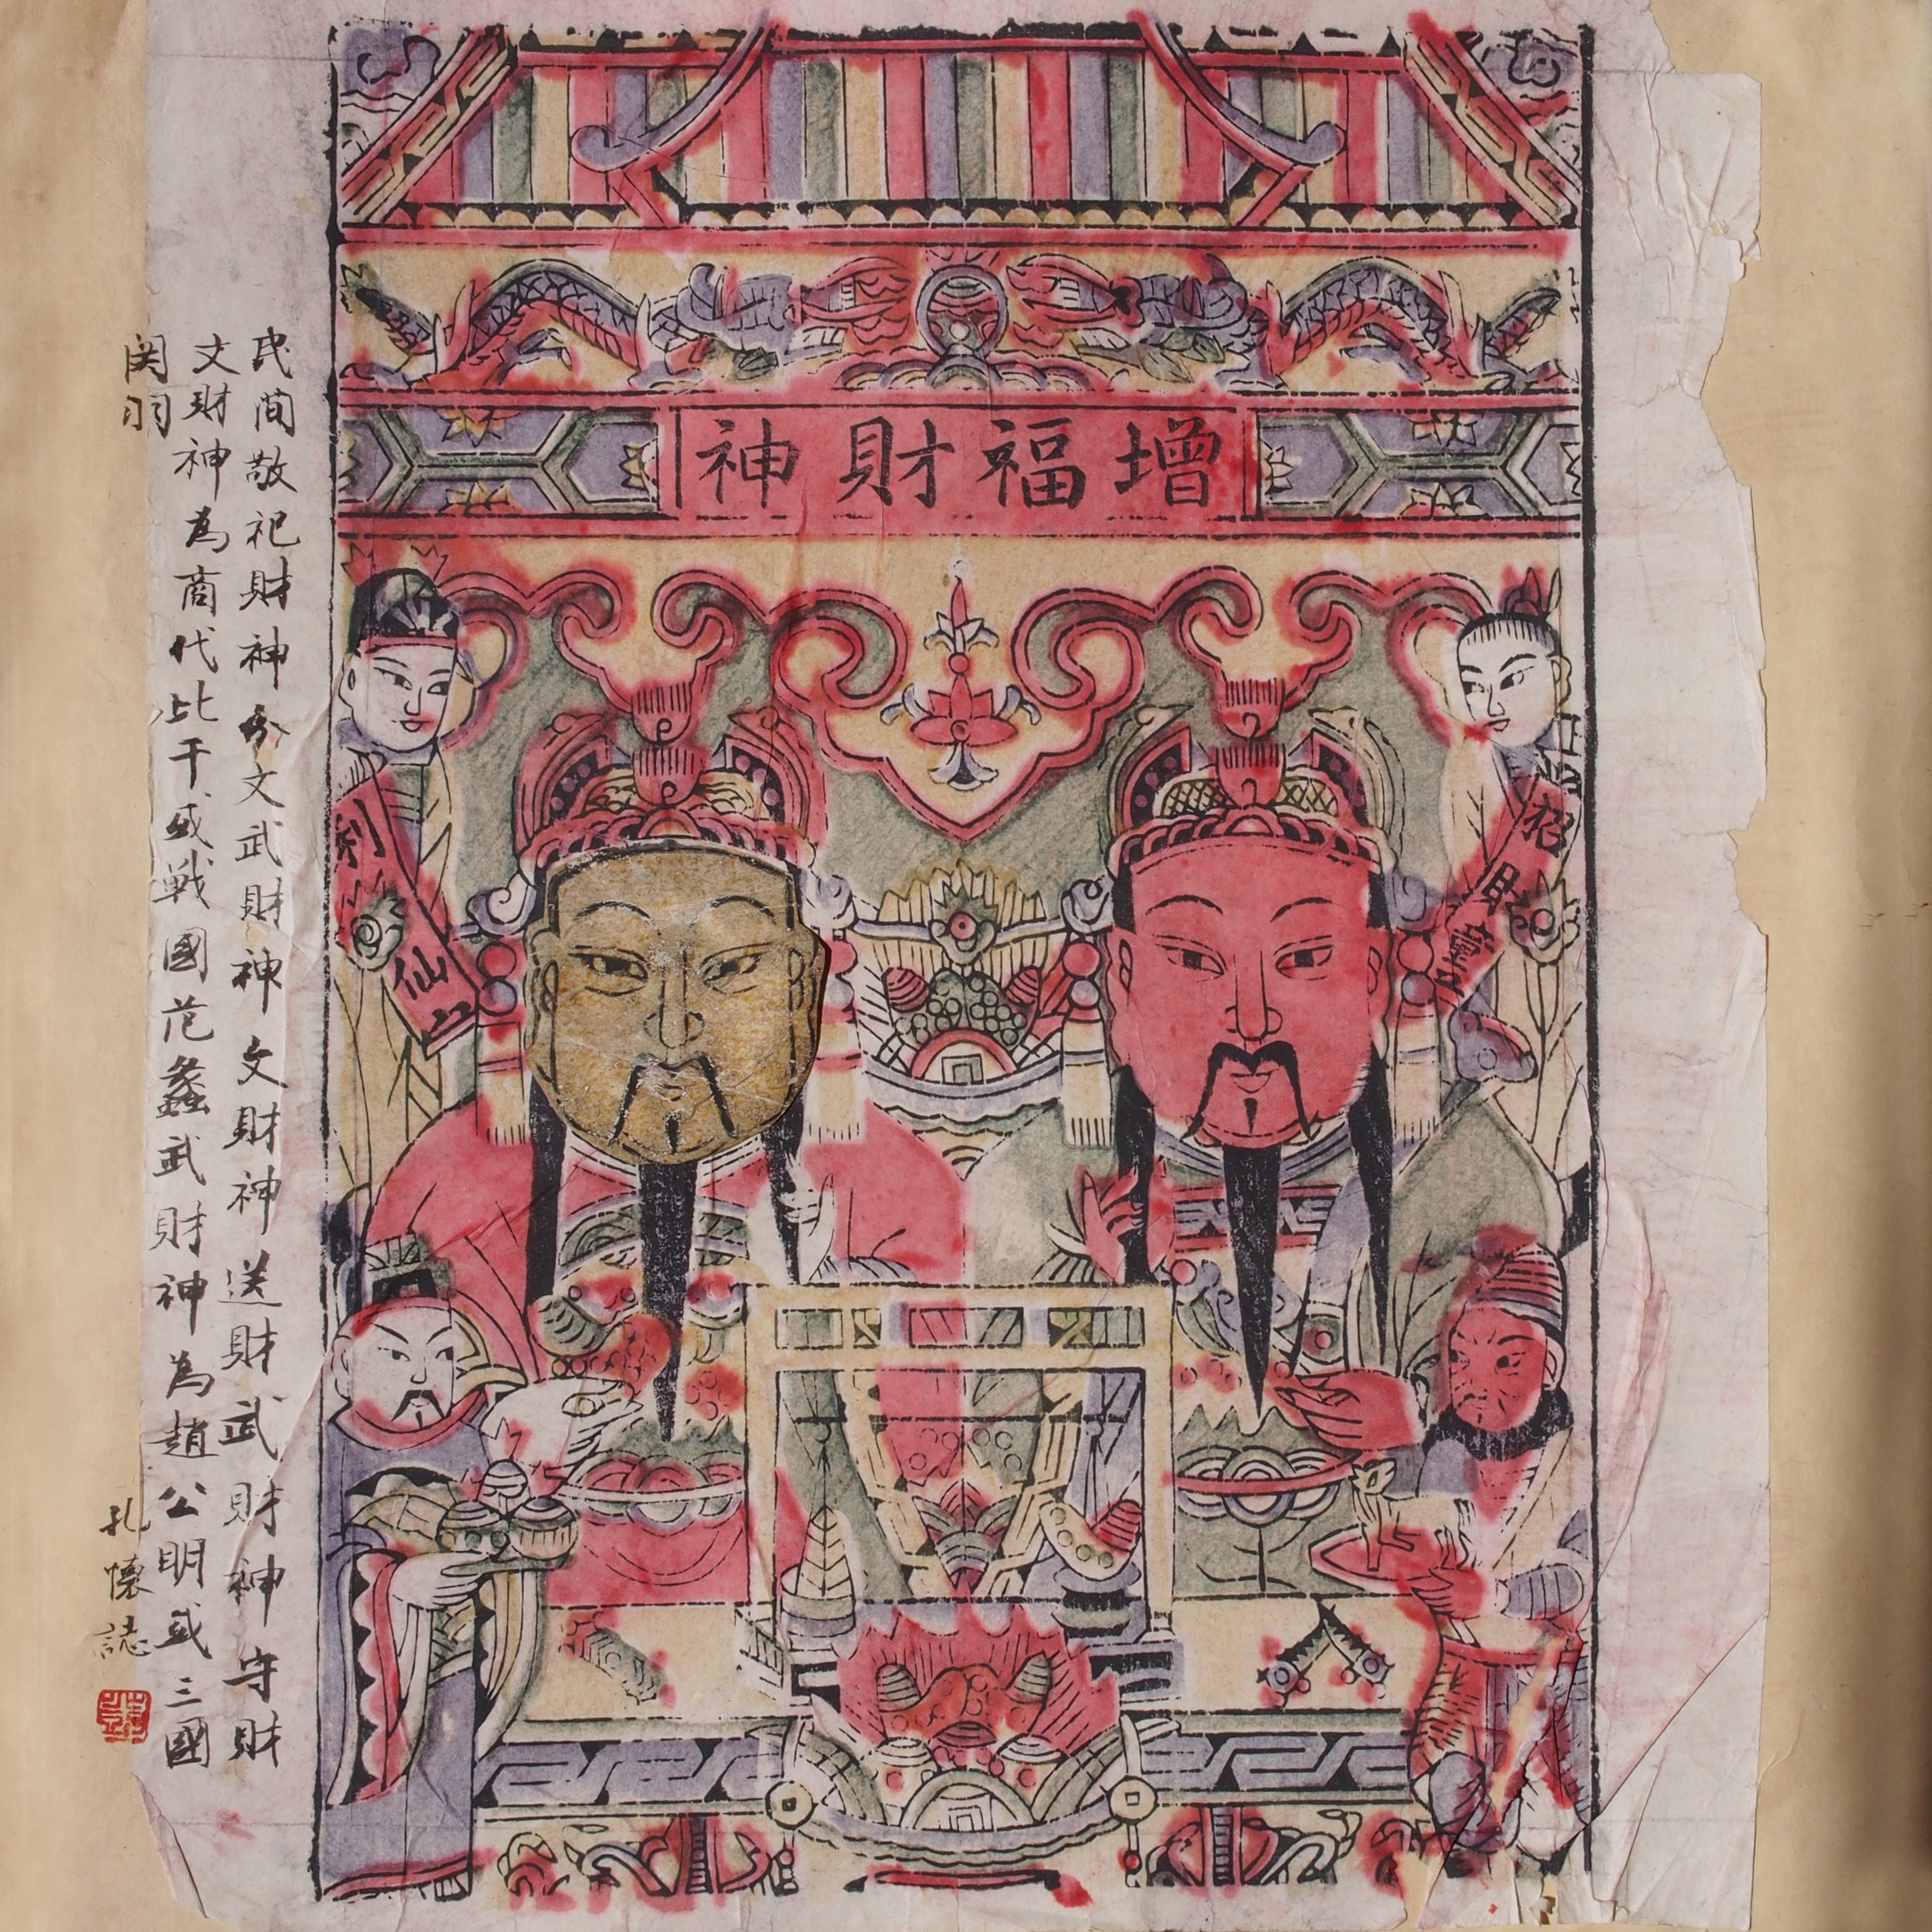 增福財神
招財童子
利市仙
民間敬祀財神分文武財神文財神送財武財神守財
文財神為商代比干或戰國范蠡武財神為趙公明或三國
関羽
孔懷誌